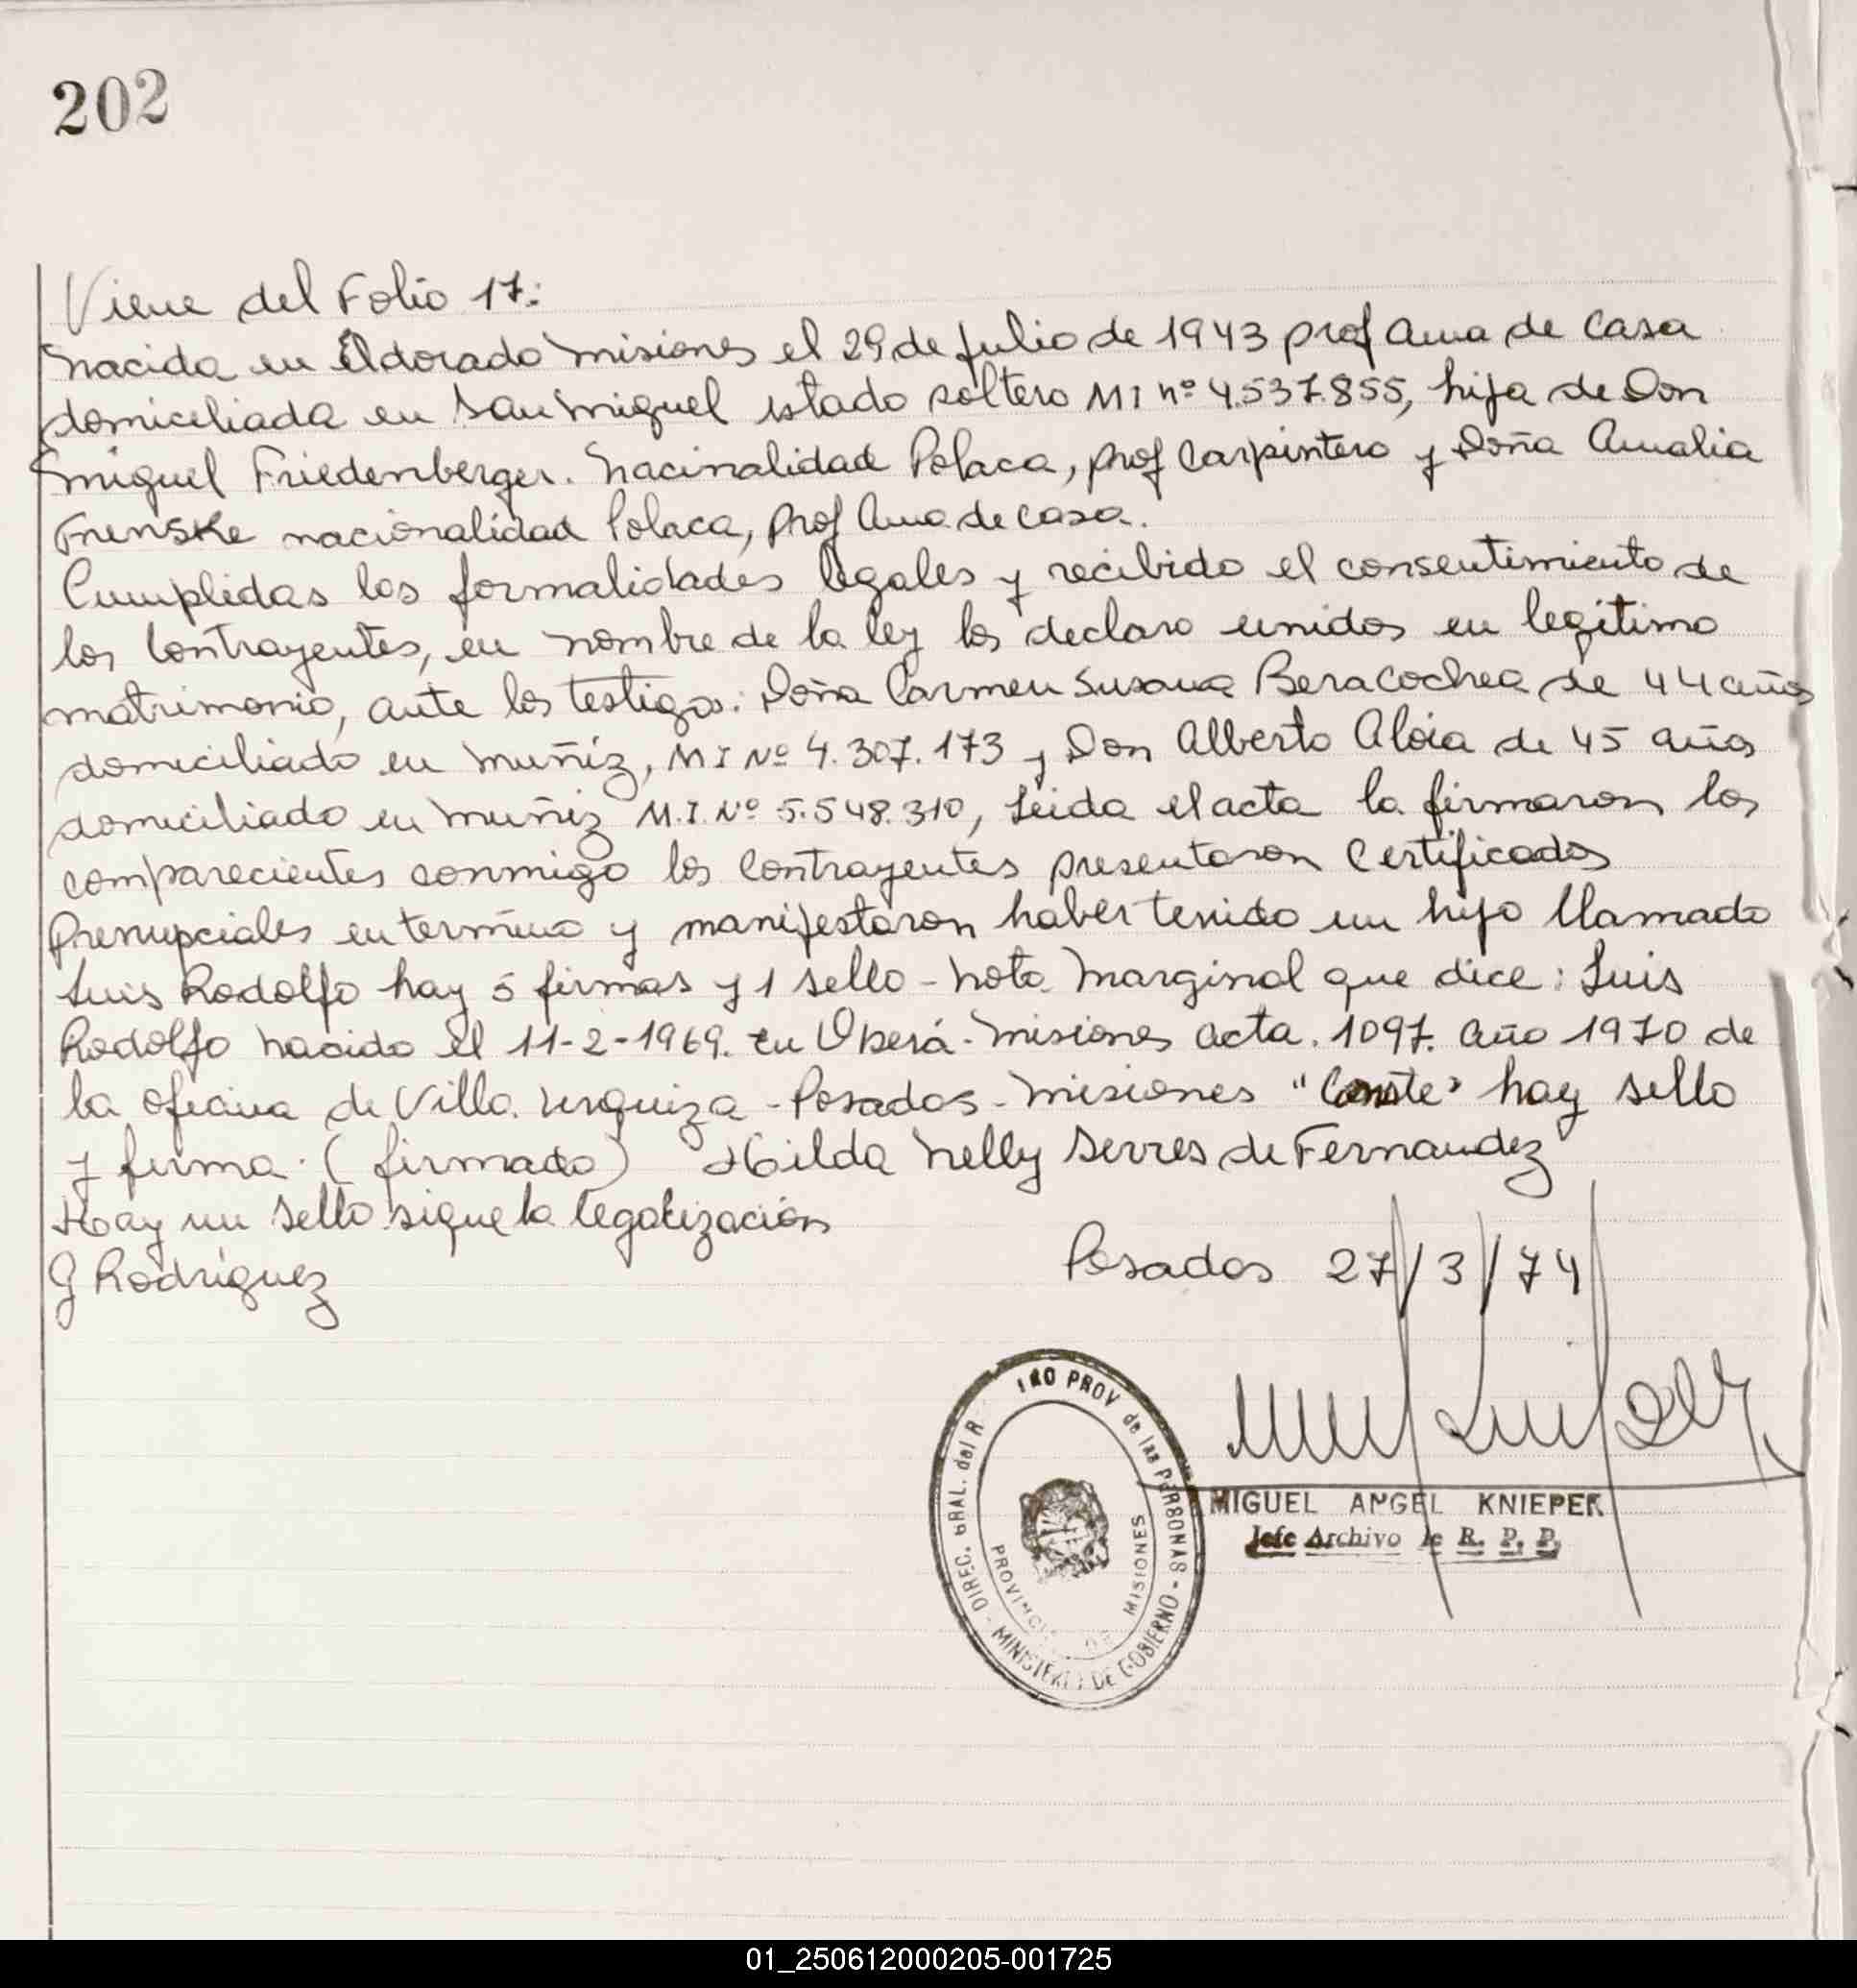 202
Viene del Folio 17:
nacida en Eldorado misiones el 29 de julio de 1943 prof ama de casa
domiciliada en San miguel estado soltero MI nº 4.537.855, hija de Don
miguel Friedenberger. nacinalidad Polaca, prof Carpintero y Doña Amalia
Frenske nacionalidad Polaca, prof Ama de casa.
Cumplidas los formalidades legales y recibido el consentimiento de
los Contrayentes, en nombre de la ley los declaro unidos en legitimo
matrimonio, ante los testigos: Doña Carmen Susana Beracochea de 44 años
domiciliado en muñiz, MI Nº 4.307.173 y Don Alberto Aloia de 45 años
domiciliado en muñiz M.I. Nº 5.548.310, Leida el acta la firmaron los
comparecientes conmigo los Contrayentes presentaron Certificados
Prenupciales en termino y manifestaron haber tenido un hijo llamado
Luis Rodolfo hay 5 firmas y 1 sello - nota marginal que dice: Luis
Rodolfo nacido el 11-2-1969. En Oberá - misiones acta. 1097. año 1970 de
la oficina de Villa Urquiza - Posadas - misiones "Conste" hay sello
y firma. (firmado) Hilda Nelly Serres de Fernandez
Hay un sello sigue la legalización
G Rodríguez
Posadas 27/3/74
DIREC. GRAL. del R PROV de las PERSONAS - MINISTERIO DE GOBIERNO -
PROVINCIA DE MISIONES
MIGUEL ANGEL KNIEPER
Jefe Archivo de R. P. P.
01_250612000205-001725